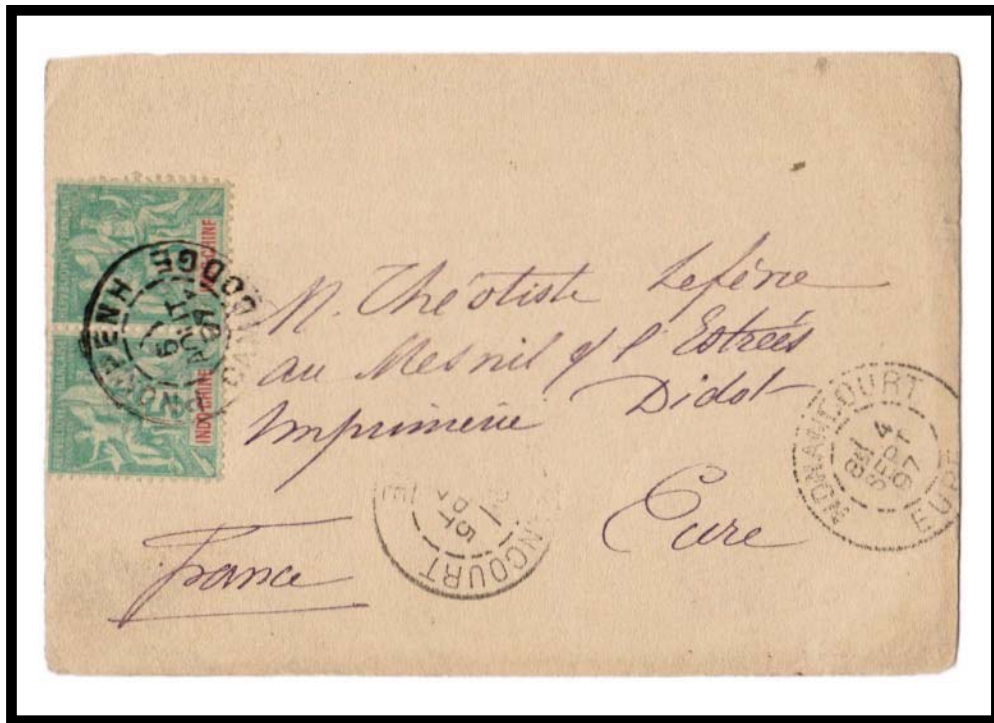 INDO-CHINE
INDO-CHINE
PNOM-PENH
CAMBODGE
AOUT
97
M. Théotiste Lefèvre
au Mesnil s/ l'Estrées
Imprimerie Didot
Eure
France
NONANCOURT
4
SEPT
97
EURE
NANCOURT